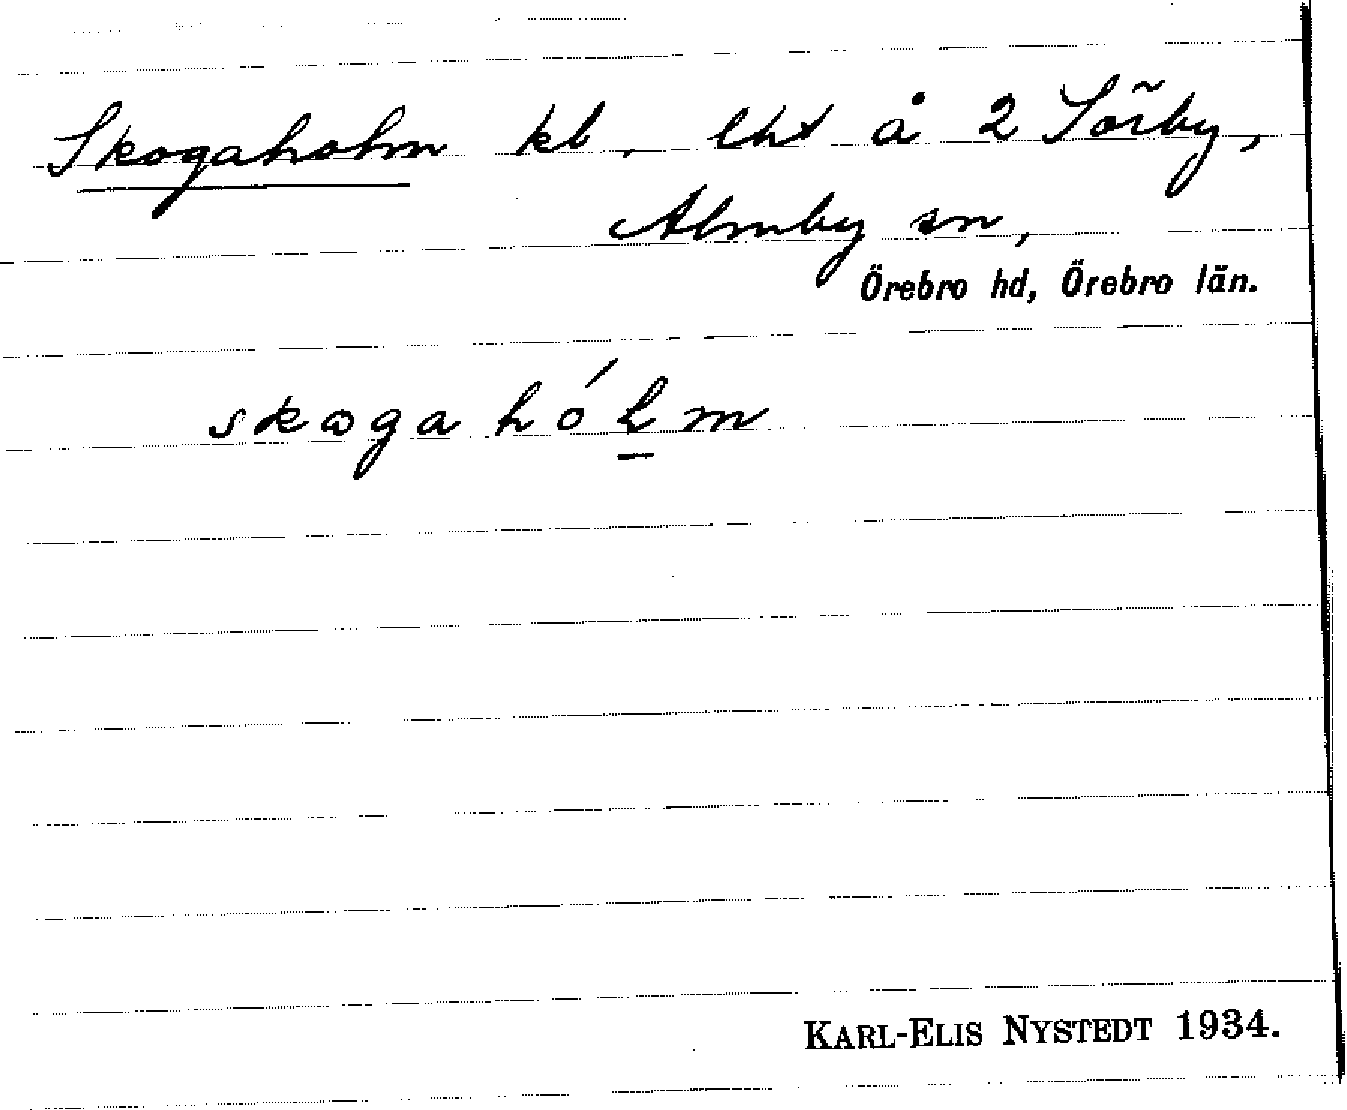 Skogaholm kl. lht å 2 Sörby,
Almby sn,
Örebro hd, Örebro län.
skogahólm
KARL-ELIS NYSTEDT 1934.